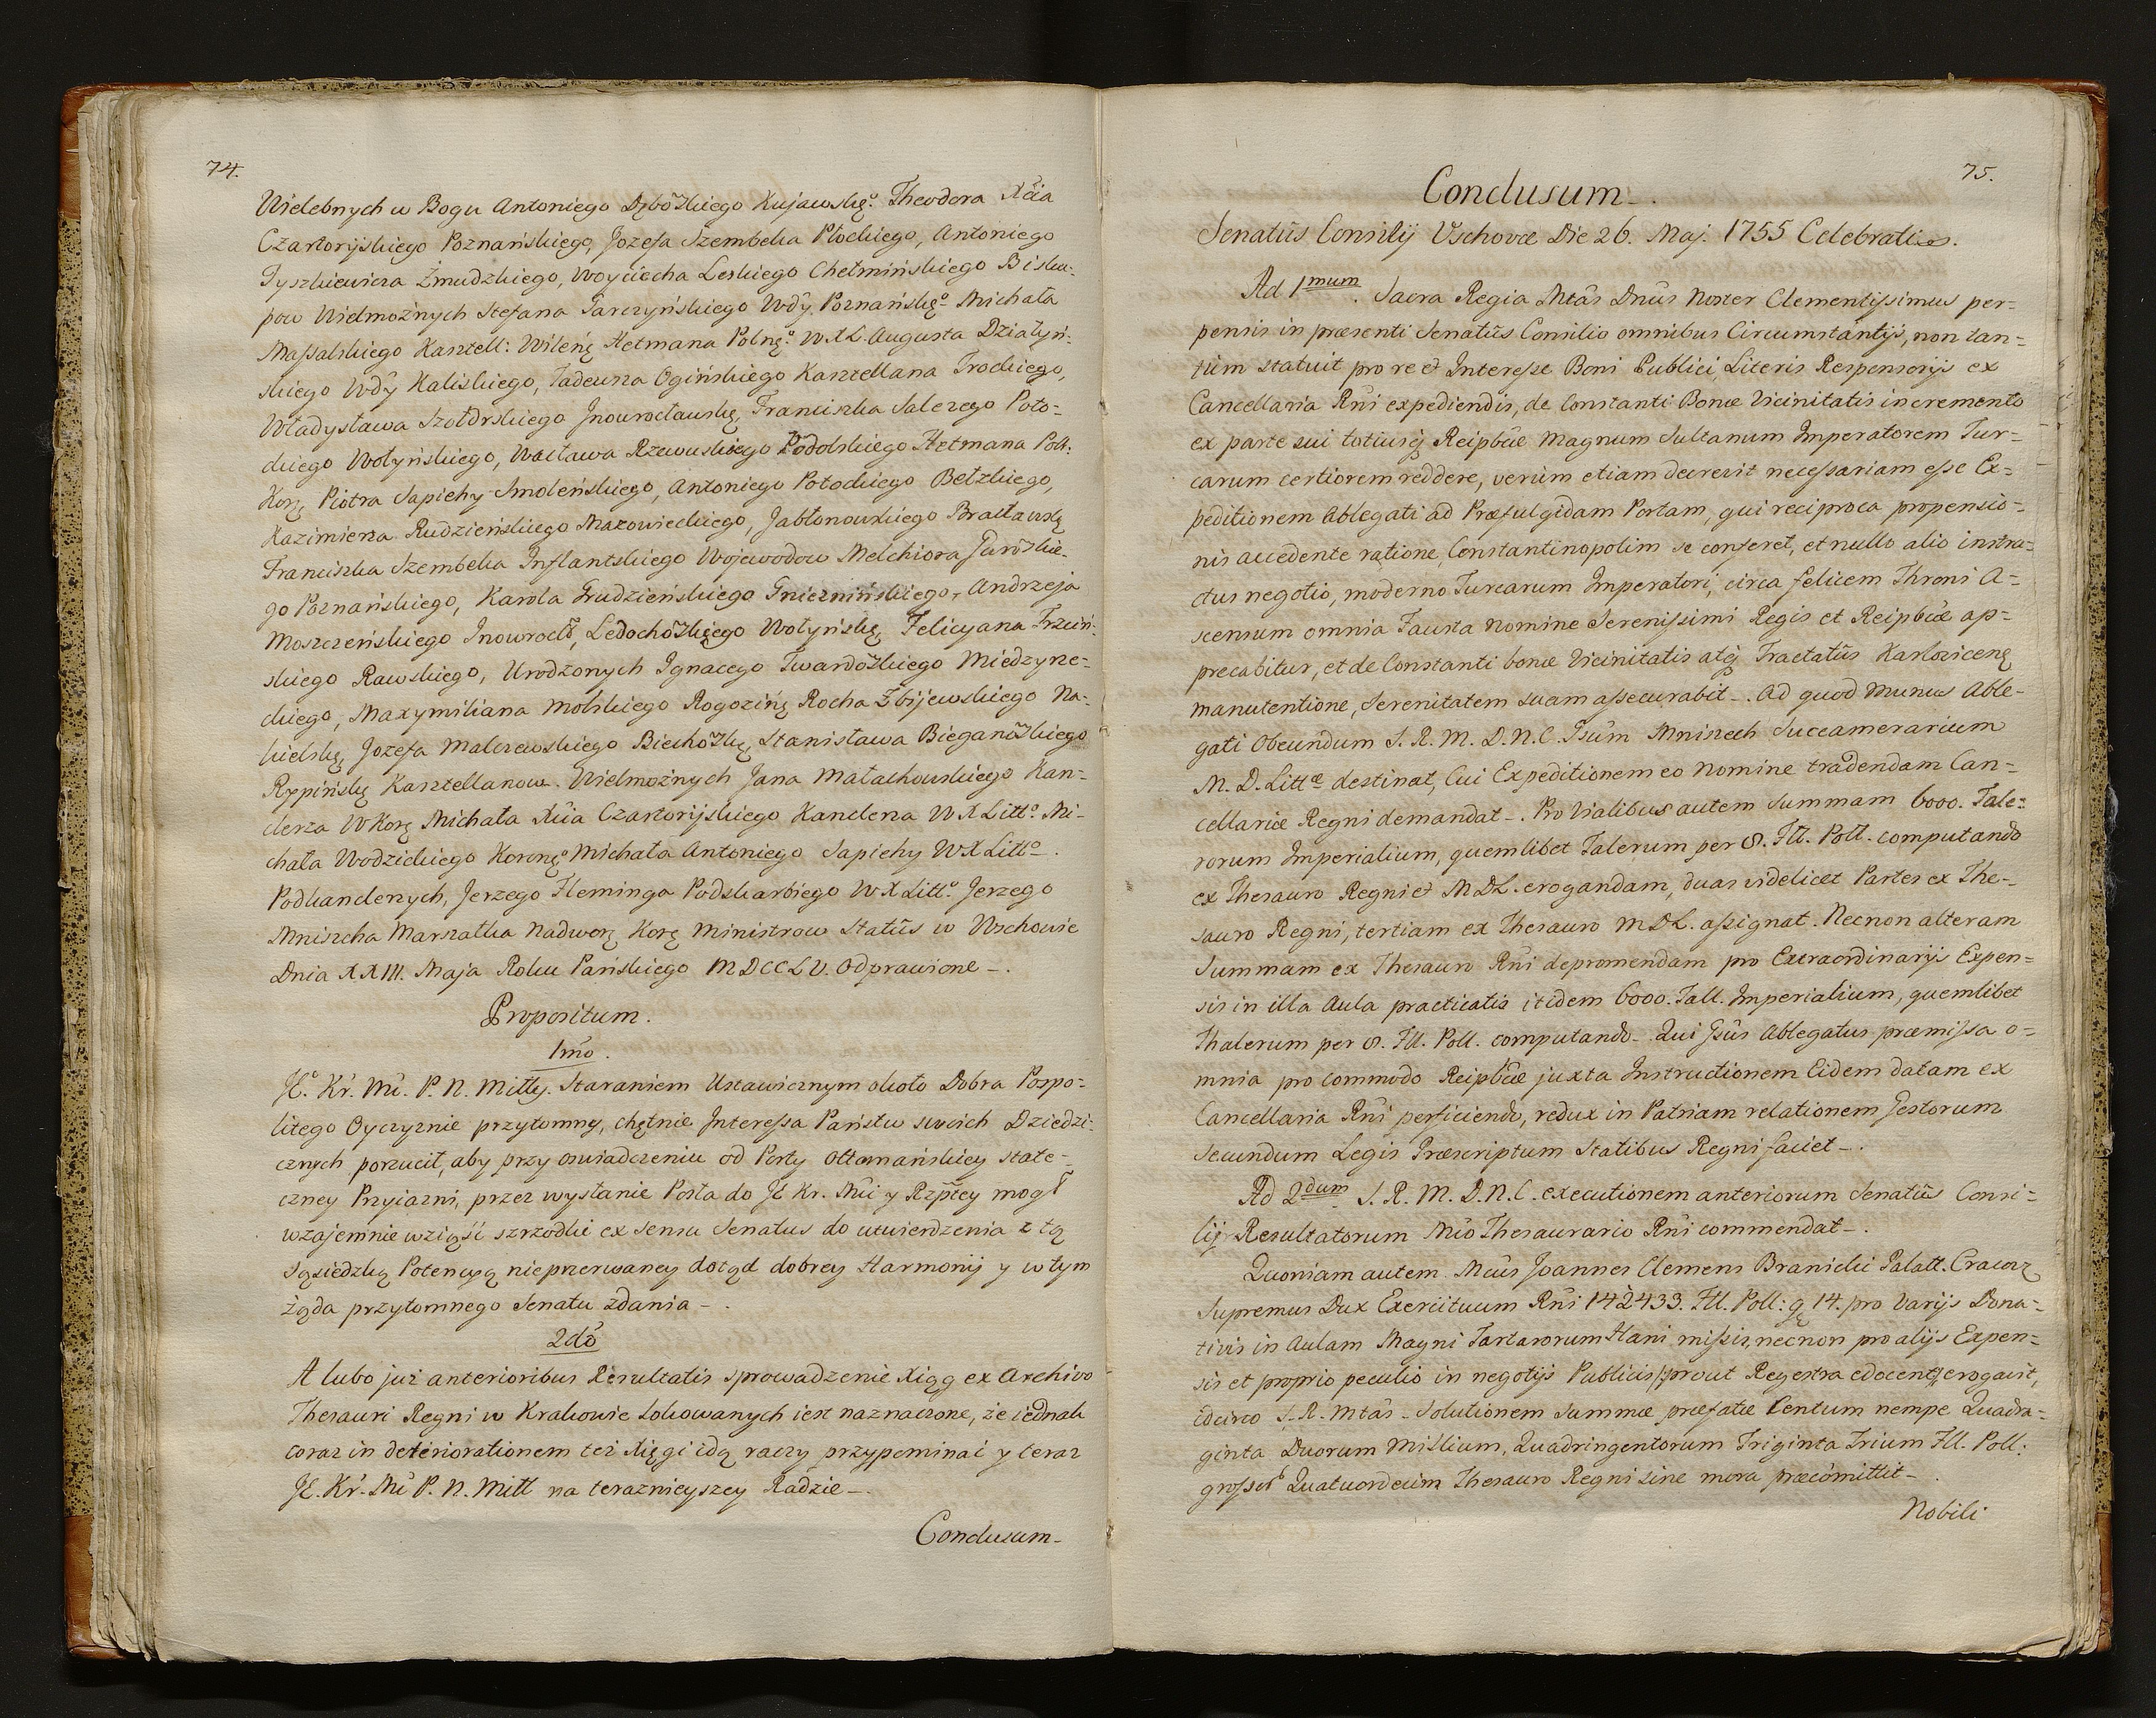 74.
Wielebnych w Bogu Antoniego Dębowskiego Kujawskᵒ. Theodora Xcia
Czartoryskiego Poznańskiego, Jozefa Szembeka Płockiego, Antoniego
Tyszkiewicza Żmudzkiego, Woyciecha Leskiego Chełmińskiego Bisku-
pow Wielmożnych Stefana Garczyńskiego Wdy. Poznańskᵒ. Michała
Massalskiego Kasztell: Wileńᵒ Hetmana Polnᵒ. W.X.L. Augusta Działyń-
skiego Wdy Kaliskiego, Tadeusza Ogińskiego Kasztellana Trockiego,
Władysława Szołdrskiego Jnowrocławskᵒ, Franciszka Salezego Poto-
ckiego Wołyńskiego, Wacława Rzewuskiego Podolskiego Hetmana Poll:
Korᵒ Piotra Sapiehy Smoleńskiego, Antoniego Potockiego Bełzkiego,
Kazimierza Rudzieńskiego Mazowieckiego, Jabłonowskiego Bracławskᵒ
Franciszka Szembeka Inflantskiego Wojewodow Melchiora Gurowskie-
go Poznańskiego, Karola Grudzieńskiego Gnieznińskiego, Andrzeja
Moszczeńskiego Inowrocłᵒ, Ledochowskiego Wołyńskᵒ, Felicyana Trzciń-
skiego Rawskiego, Urodzonych Ignacego Twardowskiego Miedzyrze-
ckiego, Maxymiliana Molskiego Rogozińᵒ Rocha Zbijewskiego Na-
kielskᵒ, Jozefa Malczewskiego Biechowskᵒ, Stanisława Bieganowskiego
Rypińskᵒ Kasztellanow. Wielmożnych Jana Małachowskiego Kan-
clerza W Korᵒ Michała Xcia Czartoryskiego Kanclerza W X Littᵒ. Mi-
chała Wodzickiego Koronᵒ Michała Antoniego Sapiehy W X Littᵒ.
Podkanclerzych, Jerzego Fleminga Podskarbiego W X Littᵒ. Jerzego
Mniszcha Marszałka Nadworᵒ Korᵒ Ministrow Statûs w Wschowie
Dnia XXIII. Maja Roku Pańskiego MDCCLV. Odprawione -.
Propositum.
1mo.
JEᵒ. Kr. Mć. P. N. Miłły. Staraniem Ustawicznym około Dobra Pospo-
litego Oyczyznie przytomny, chętnie Interessa Państw swoich Dziedzi-
cznych porzucił, aby przy oswiadczeniu od Porty Ottomańskiey state-
czney Przyiazni, przez wysłanie Posła do JE Kr. Mci y Rzptey mogł
wzajemnie wziąść szrzodki ex sensu Senatus do utwierdzenia z tą
Sąsiedzką Potencyą nieprzerwaney dotąd dobrey Harmonij y w tym
żąda przytomnego Senatu zdania -.
2do
A lubo już anterioribus Resultatis sprowadzenie Xiąg ex Archivo
Thesauri Regni w Krakowie lokowanych iest naznaczone, że iednak
coraz in deteriorationem też Xięgi idą raczy przypominać y teraz
JE. Kr. Mć P. N. Miłł na teraznieyszey Radzie -.
Conclusum-

75.
Conclusum -.
Senatûs Consilij Vschovæ Die 26. Maj. 1755 Celebrati.
Ad 1mum. Sacra Regia Mtâs Dnûs Noster Clementissimus per-
pensis in præsenti Senatûs Consilio omnibus Circumstantijs, non tan-
tùm statuit pro re et Interesse Boni Publici, Literis Responsorijs ex
Cancellaria Rñi expediendis, de Constanti Bonæ Vicinitatis incremento
ex parte sui totiusq Reipbcæ Magnum Sultanum Imperatorem Tur-
carum certiorem reddere, verùm etiam decrevit necessariam esse Ex-
peditionem Ablegati ad Præfulgidam Portam, qui reciproca propensio-
nis accedente ratione, Constantinopolim se conferet, et nullo alio instru-
ctus negotio, moderno Turcarum Imperatori, circa felicem Throni A-
scensum omnia Fausta nomine Serenissimi Regis et Reipbcæ ap-
precabitur, et de Constanti bonæ Vicinitatis atq Tractatûs Karlovicenᵒ
manutentione, Serenitatem suam assecurabit -. Ad quod Munus Able-
gati Obeundum S. R. M. D. N. C. Gsûm Mniszech Succamerarium
M. D. Littæ destinat, Cui Expeditionem eo Nomine tradendam Can-
cellariæ Regni demandat -. Pro Vialibus autem Summam 6000. Tale-
rorum Imperialium, quemlibet Talerum per 8. Fll. Poll. computando
ex Thesauro Regni et MDL. erogandam, duas videlicet Partes ex The-
sauro Regni, tertiam ex Thesauro MDL. assignat. Necnon alteram
Summam ex Thesauro Rñi depromendam pro Extraordinarijs Expen-
sis in illa Aula practicatis itidem 6000. Tall. Imperialium, quemlibet
Thalerum per 8. Fll. Poll. computando -. Qui Gsûs Ablegatus præmissa o-
mnia pro commodo Reipbcæ juxta Instructionem Eidem datam ex
Cancellaria Rñi perficiendo, redux in Patriam relationem Gestorum
secundum Legis Præscriptum Statibus Regni faciet -.
Ad 2dum. S. R. M. D. N. C. executionem anteriorum Senatûs Consi-
lij Resultatorum Mco Thesaurario Rñi commendat -.
Quoniam autem Mcus Joannes Clemens Branicki Palatt. Cracov.
Supremus Dux Exercituum Rñi 142433. Fll. Poll: g. 14. pro Varijs Dona-
tivis in Aulam Magni Tartarorum Hani missis, necnon pro alijs Expen-
sis et proprio peculio in negotijs Publicis /:prout Regestra edocent:/ erogavit,
idcirco S. R. Mtâs - Solutionem Summæ præfatæ Centum nempe Quadra-
ginta Duorum Millium, Quadringentorum Triginta Trium Fll. Poll:
grossor Quatuordecim Thesauro Regni sine mora præcommittit -.
Nobili